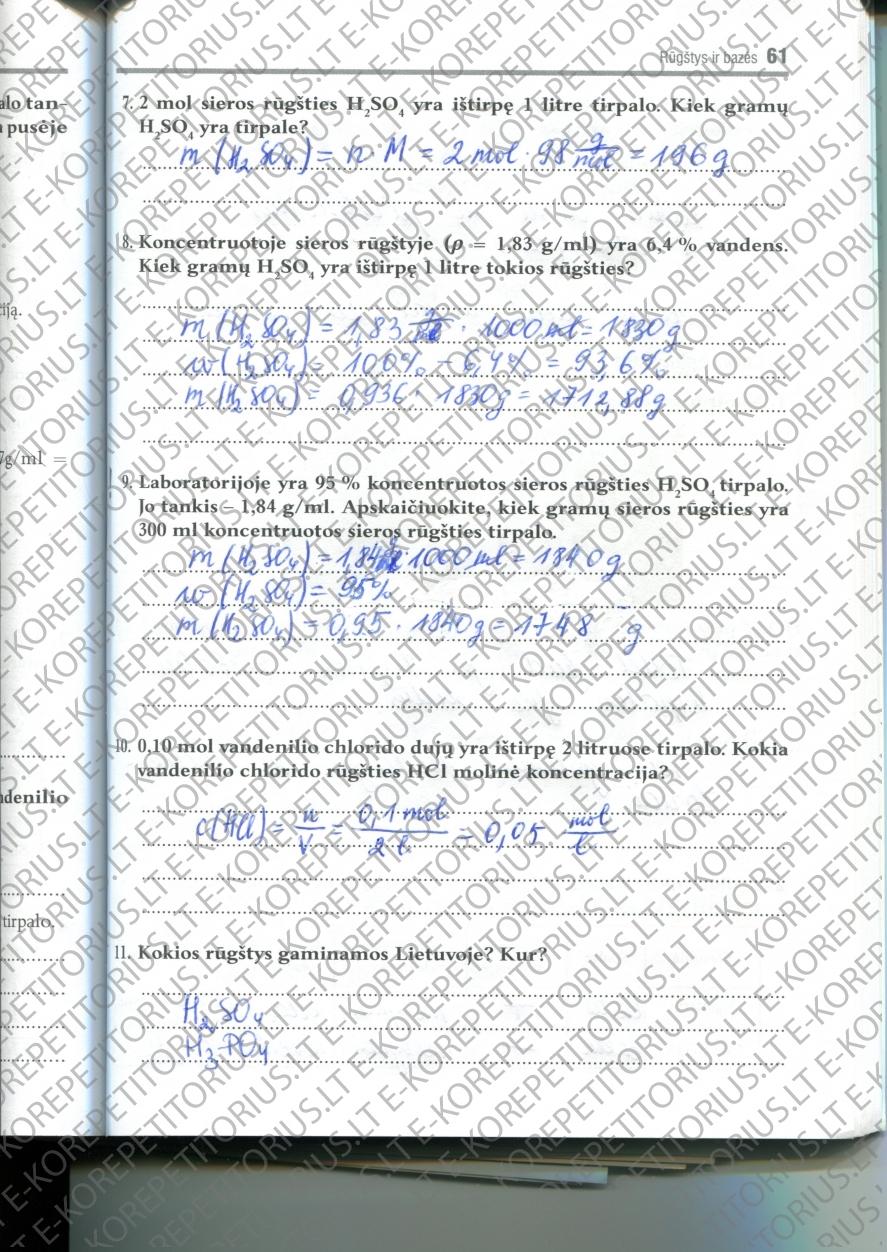 Rūgštys ir bazės 61
alo tan-
pusėje
7. 2 mol sieros rūgšties H₂SO₄ yra ištirpę 1 litre tirpalo. Kiek gramų
H₂SO₄ yra tirpale?
m (H₂SO₄) = n · M = 2 mol · 98 g/mol = 196 g
8. Koncentruotoje sieros rūgštyje (ρ = 1,83 g/ml) yra 6,4 % vandens.
Kiek gramų H₂SO₄ yra ištirpę 1 litre tokios rūgšties?
iją.
m (H₂SO₄) = 1,83 g/ml · 1000 ml = 1830 g
w (H₂SO₄) = 100% - 6,4% = 93,6%
m (H₂SO₄) = 0,936 · 1830g = 1712,88g
7g/ml =
9. Laboratorijoje yra 95 % koncentruotos sieros rūgšties H₂SO₄ tirpalo.
Jo tankis – 1,84 g/ml. Apskaičiuokite, kiek gramų sieros rūgšties yra
300 ml koncentruotos sieros rūgšties tirpalo.
m (H₂SO₄) = 1,84 g/ml · 1000 ml = 1840 g
w (H₂SO₄) = 95%
m (H₂SO₄) = 0,95 · 1840g = 1748 g
10. 0,10 mol vandenilio chlorido dujų yra ištirpę 2 litruose tirpalo. Kokia
vandenilio chlorido rūgšties HCl molinė koncentracija?
ndenilio
c(HCl) = n/V = 0,1 mol/2 l = 0,05 mol/l
tirpalo.
11. Kokios rūgštys gaminamos Lietuvoje? Kur?
H₂SO₄
H₃PO₄
E-KOREPETITORIUS.LT